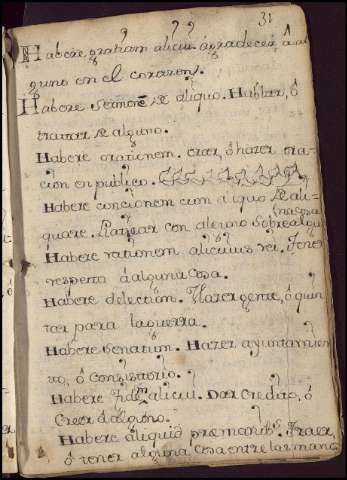 31
Habere gratiam alicui. agradecer, a al
guno en el corazon.
Habere Sermonẽ de aliquo. Hablar, ó
tratar de alguno.
Habere orationem. orar, ó hazer ora
cion en publico.
Habere concionem cum aliquo de ali
quare. Platicar con alguno sobre algu
na cosa
Habere rationem alicuius rei. Tener
respeto á alguna cosa.
Habere delectum. Hazer gente, ó quin
tar para la guerra.
Habere Senatum. Hazer ayuntamien
to, ó Consistorio.
Habere fidem alicui. Dar Credito, ó
Creer á alguno.
Habere aliquid præ manibus. Traer,
ó tener alguna Cosa entre las manos